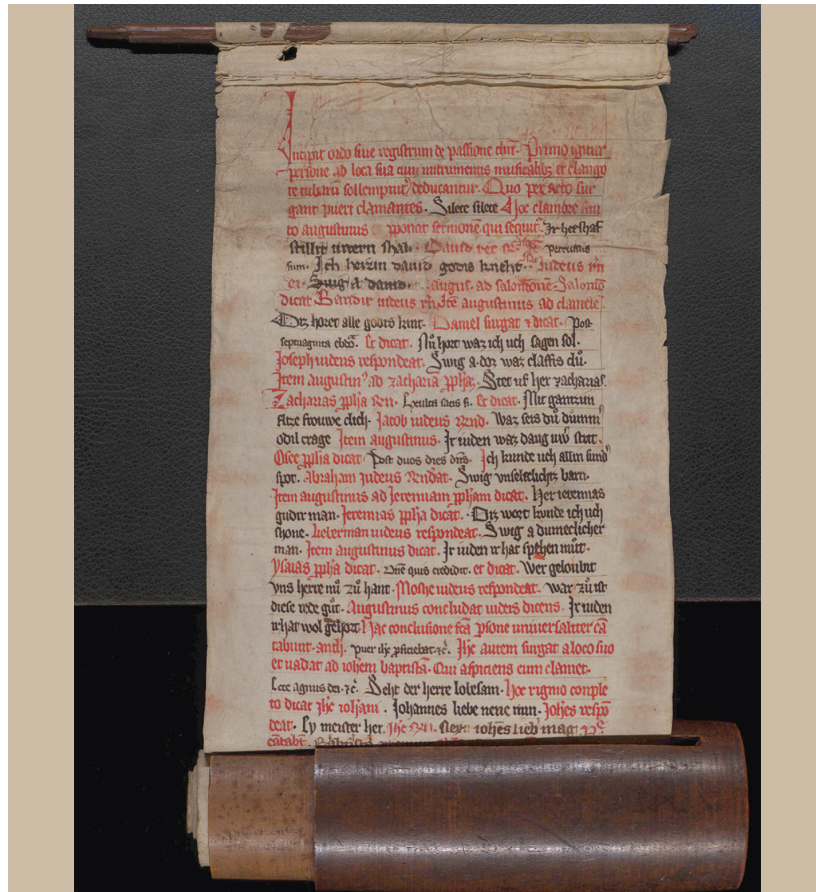 Incipit ordo siue registrum de passione dni. Primo igitur
persone ad loca sua cum instrumentis musicalibz et clango
re tubarū sollempnitʼ deducantur. Quo peracto sur
gant pueri clamantes. Silete silete Hoc clamore fini
to augustinus ponat sermonē qui sequitʼ. Ir herschaf
stillit uwern shal. Dauid
sum. Ich heizin dauid godis kneht. Iudeus rn
ei. Swig a dauid. augus. ad salomonē. Salomō
dicat Baruch iudeus rn. Itē augustinus ad danielē.
Orz horet alle godis kint. Daniel surgat ⁊ dicat. Post
septuaginta ebdoā. Et dicat. Nū hort waz ich uch sagen sol.
Ioseph iudeus respondeat. Swig a. doz waz claffis dū.
Item augustinʼ ad zachariā ppha. Stet uf her zacharias.
Zacharias ppha Rn. Exulta satis fi. Et dicat. Mit ganzin
flize frouwe dich. Iacob iudeus Rnd. Waz seis dū dummʼ
odil crage Item augustinus. Ir iuden waz daug uwʼ strit.
Osee ppha dicat Post duos dies dns. Ich kunde uch allin sundʼ
spot. Abraham Iudeus Rndat. Swig vnseleclichz barn.
Item augustinus ad Ieremiam ppham dicat. Her ieremias
gudir man. Ieremias ppha dicat. Diz wort konde ich uch
shone. Lieberman iudeus respondeat. Swig a dumeclicher
man. Item augustinus dicat. Ir iuden ir hat spehen mūt.
Ysaias ppha dicat. Dne quis credidit. et dicat. Wer geloubit
vns herre nū zū hant. Moshe iudeus respondeat. war zū ist
diese rede gūt. Augustinus concludat iudeis dicens. Ir iuden
ir hat wol gehort. Hac conclusione fcā psone uniuersaliter cā
tabunt. anth. puer ihc pficiebat ⁊c. Ihc autem surgat a loco suo
et uadat ad iohem baptistā. Qui aspiciens eum clamet.
Ecce agnus dei. ⁊c. Seht der herre lobesam. hoc rigmo comple
to dicat Ihc iohani. Iohannes liebe neue min. Iohes respō
deat. Ey meister her. Ihc Rn. Nein iohes lieb mag
cātabt.